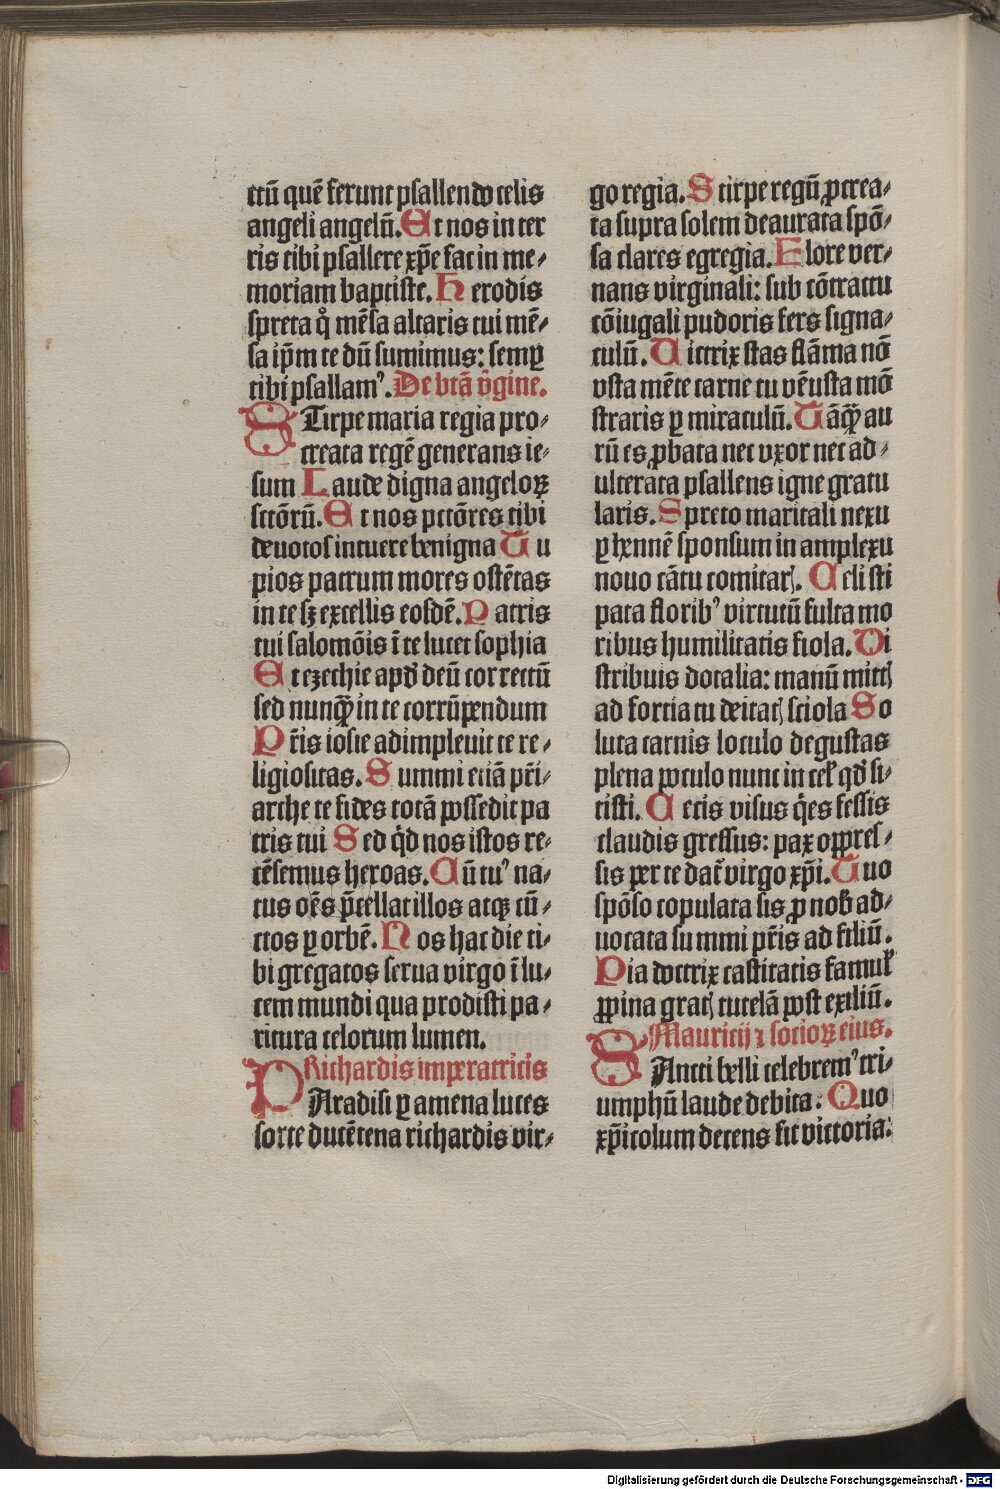 ctū quē ferunt psallendo celis
angeli angelū. Et nos in ter
ris tibi psallere xp̄e fac in me-
moriam baptiste. Herodis
spreta q̊ mēsa altaris tui mē-
sa ip̄m te dū sumimus: semꝑ
tibi psallamꝰ. De btā v̄gine.
STirpe maria regia pro-
creata regē generans ie-
sum Laude digna angeloꝝ
sctōrū. Et nos pctōres tibi
deuotos intuere benigna Tu
pios patrum mores ostētas
in te sꝫ excellis eosdē. Patris
tui salomōis ī te lucet sophia
Et ezechie apd̕ deū correctū
sed nunqꝫ̄ in te corrūpendum
Pr̄is iosie adimpleuit te re-
ligiositas. Summi etiā pr̄i-
arche te fides totā possedit pa
tris tui Sed qd̕ nos istos re-
cēsemus heroas. Cū tuꝰ na-
tus oēs p̄cellat illos atqꝫ cū-
ctos ꝑ orbē. Nos hac die ti-
bi gregatos serua virgo ī lu-
cem mundi qua prodisti pa-
ritura celorum lumen.
Richardis imperatricis
PAradisi ꝑ amena luces
sorte ducētena richardis vir-
go regia. Stirpe regū ꝓcrea-
ta supra solem deaurata spō-
sa clares egregia. Flore ver-
nans virginali: sub cōtractu
cōiugali pudoris fers signa-
culū. Uictrix stas flāma nō
vsta mēte carne tu vēusta mō
straris ꝑ miraculū. Tāqꝫ̄ au
rū es ꝓbata nec vxor nec ad-
ulterata psallens igne gratu
laris. Spreto maritali nexu
ꝑhennē sponsum in amplexu
nouo cātu comitaꝝ. Celi sti
pata floribꝰ virtutū fulta mo
ribus humilitatis fiola. Di
stribuis dotalia: manū mittꝭ
ad fortia tu deitatꝭ sciola So
luta carnis loculo degustas
plena poculo nunc in cel̕ qd̕ si-
tisti. Cecis visus q̄es fessis
claudis gressus: pax oppres-
sis per te dat̕ virgo xp̄i. Tuo
spōso copulata sis ꝓ nob̕ ad-
uocata summi pr̄is ad filiū.
Pia doctrix castitatis famul̕
ꝓpina gratꝭ tutelā post exiliū.
Mauricij ⁊ socioꝝ eius.
SAncti belli celebremꝰ tri-
umphū laude debita. Quo
xp̄icolum decens fit victoria:
Digitalisierung gefördert durch die Deutsche Forschungsgemeinschaft - DFG